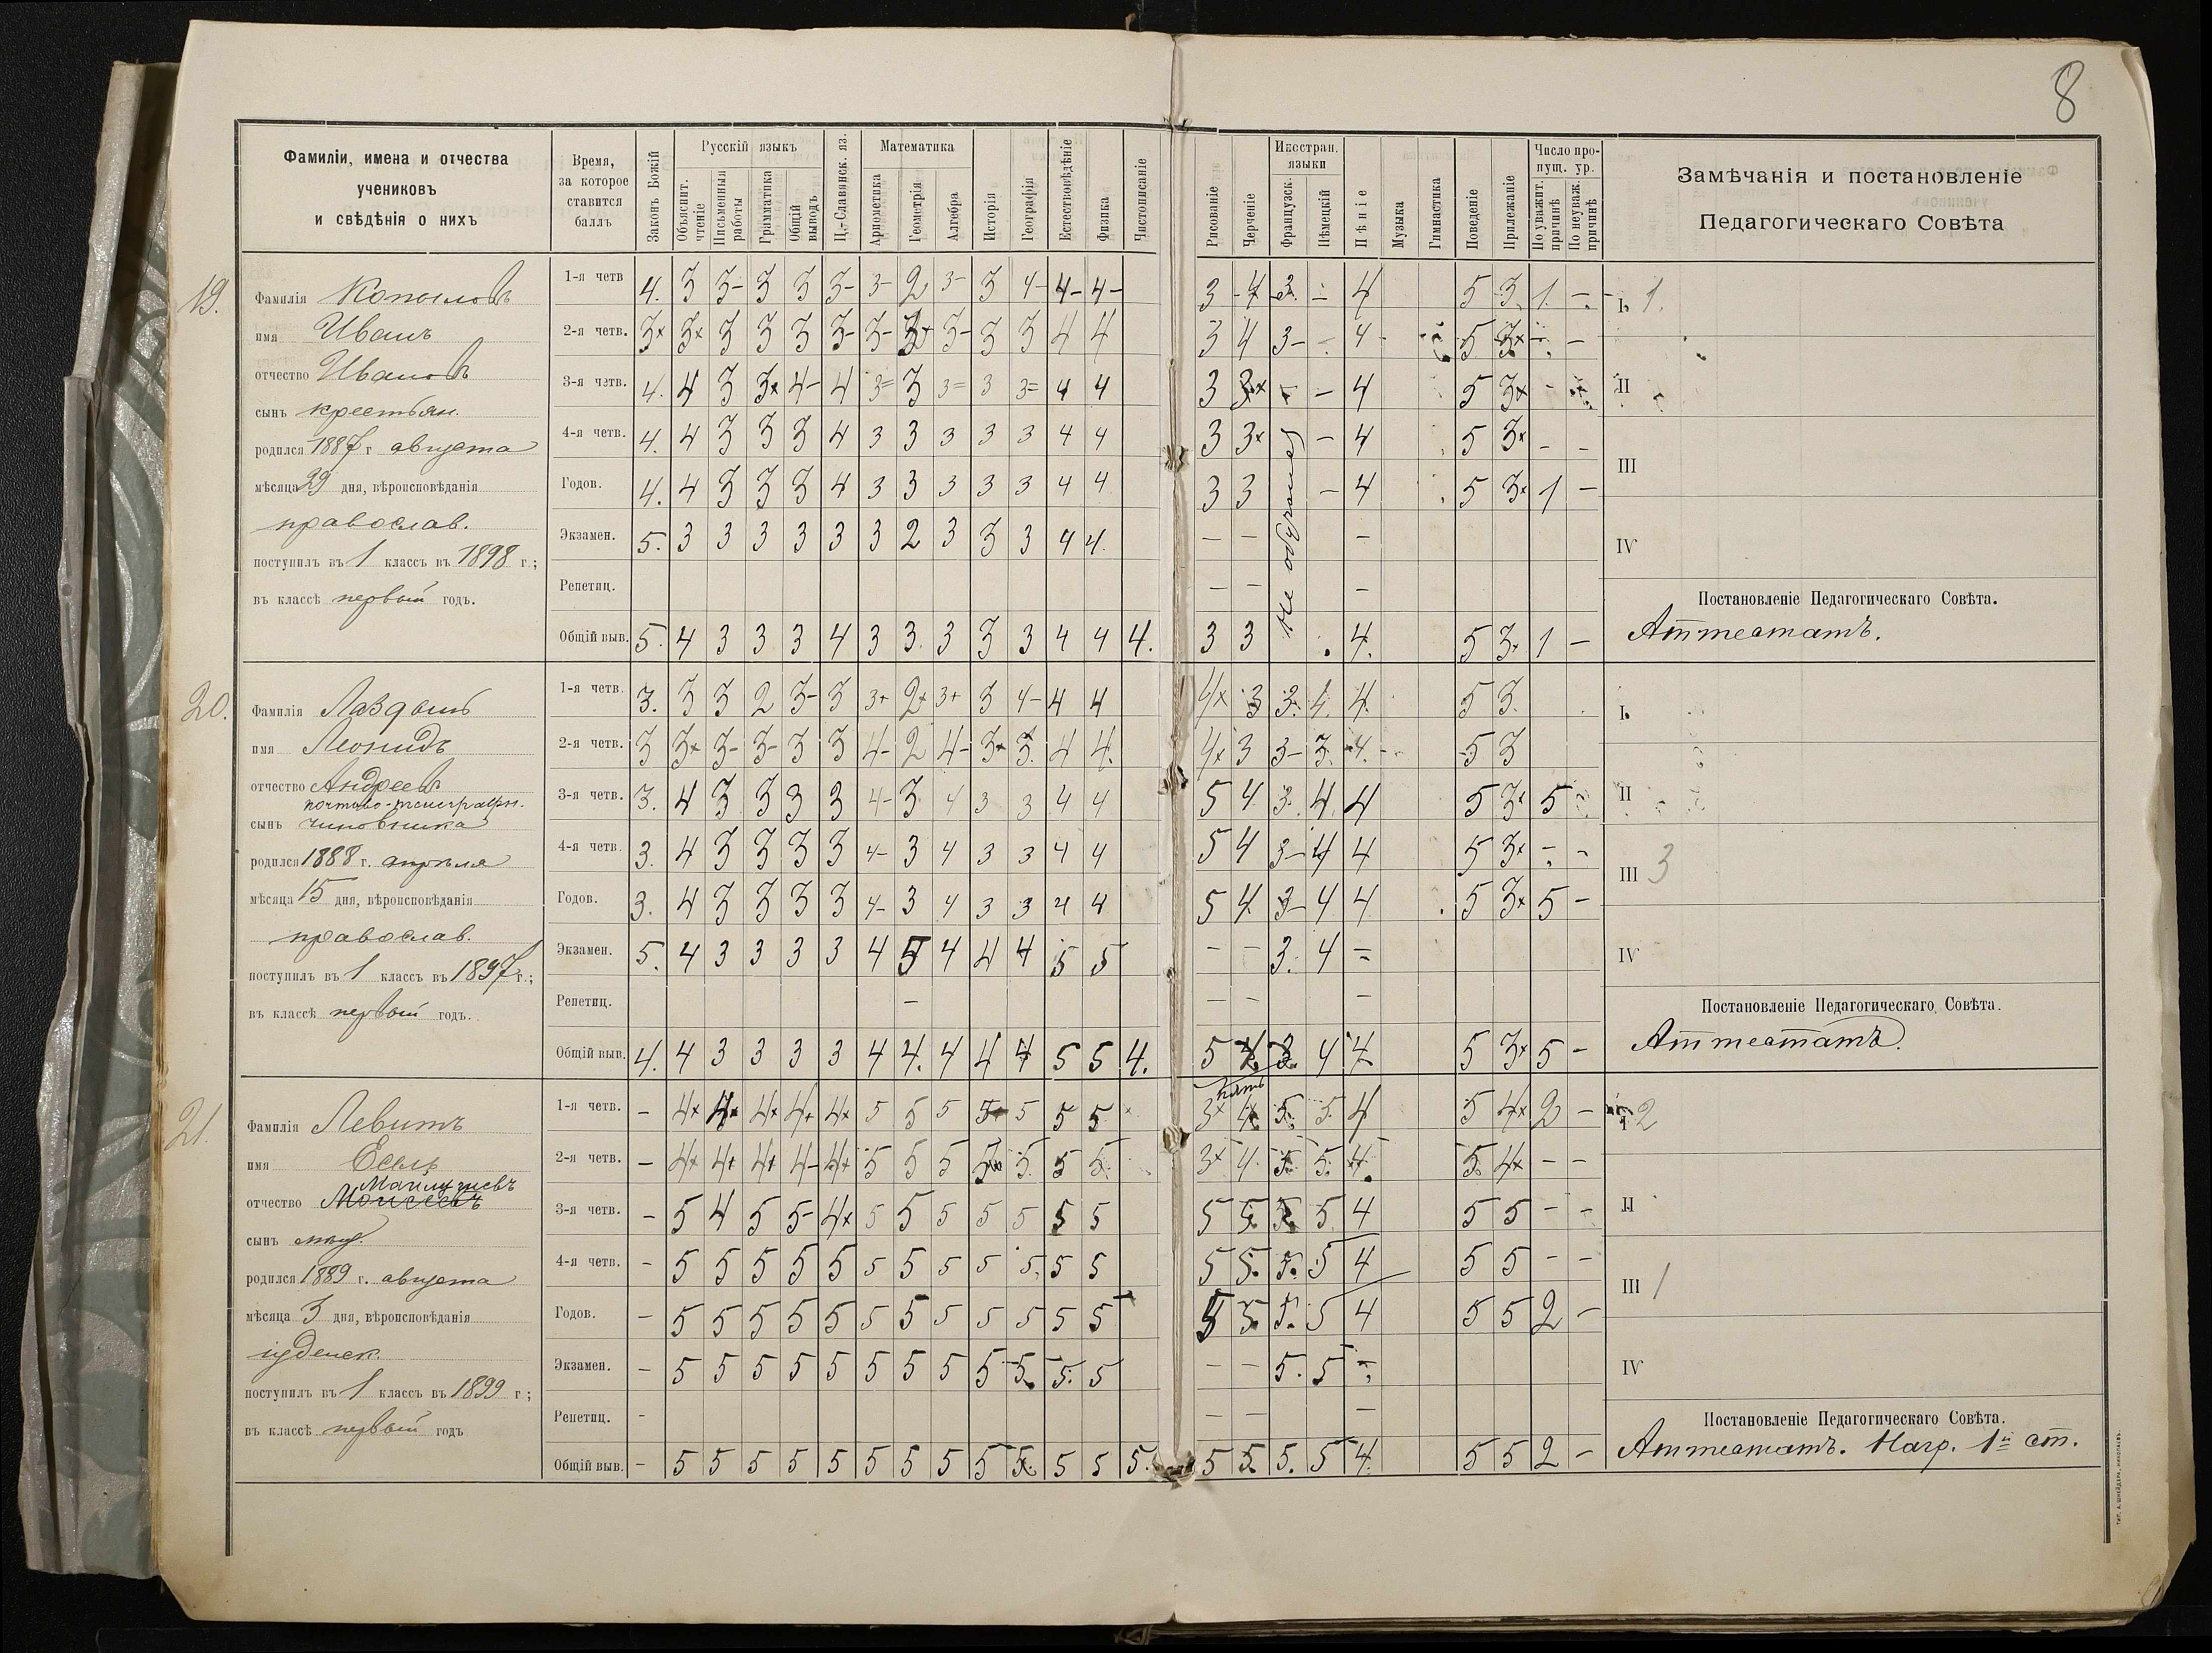 8
Фамиліи, имена и отчества
учениковъ
и свѣдѣнія о нихъ
Время,
за которое
ставится
баллъ
Законъ Божій
Русскій языкъ
Объяснит. чтеніе
Письменныя работы
Грамматика
Общій выводъ
Ц.-Славянск. яз.
Математика
Ариѳметика
Геометрія
Алгебра
Исторія
Географія
Естествовѣдѣніе
Физика
Чистописаніе
Рисованіе
Черченіе
Иностран. языки
Французск.
Нѣмецкій
Пѣніе
Музыка
Гимнастика
Поведеніе
Прилежаніе
Число пропущ. ур.
По уважит. причинѣ
По неуваж. причинѣ
Замѣчанія и постановленіе
Педагогическаго Совѣта
19.
Фамилія Копыловъ
имя Иванъ
отчество Ивановъ
сынъ крестьян.
родился 1887 г августа
мѣсяца 29 дня, вѣроисповѣданія
православ.
поступилъ въ 1 классъ въ 1898 г.;
въ классѣ первый годъ.
1-я четв 4. 3 3- 3 3 3- 3- 2 3- 3 4- 4- 4- 3 4 3. - 4 5 3. 1. - I. 1.
2-я четв. 3+ 3+ 3 3 3 3- 3- 3+ 3- 3 3 4 4 3 4 3- - 4 5 3+ - -
3-я четв. 4. 4 3 3+ 4- 4 3= 3 3= 3 3= 4 4 3 3+ - 4 5 3+ - II
4-я четв. 4. 4 3 3 3 4 3 3 3 3 3 4 4 3 3+ - 4 5 3+ - -
Годов. 4. 4 3 3 3 4 3 3 3 3 3 4 4 3 3 - 4 5 3+ 1 - III
Экзамен. 5. 3 3 3 3 3 3 2 3 3 3 4 4. - - - IV
Не обучался
Репетиц. - - -
Постановленіе Педагогическаго Совѣта.
Общій выв. 5. 4 3 3 3 4 3 3. 3 3 3 4 4 4. 3 3 4. 5 3+ 1 - Аттестатъ.
20.
Фамилія Лаздынъ
имя Леонидъ
отчество Андреевъ
почтово-телеграфн.
сынъ чиновника
родился 1888 г. апрѣля
мѣсяца 15 дня, вѣроисповѣданія
православ.
поступилъ въ 1 классъ въ 1897 г.;
въ классѣ первый годъ.
1-я четв. 3. 3 3 2 3- 3 3+ 2+ 3+ 3 4- 4 4 4+ 3 3. 4. 4. 5 3. I.
2-я четв. 3 3+ 3- 3- 3 3 4- 2 4- 3+ 3. 4 4. 4+ 3 3- 3. 4. 5 3
3-я четв. 3. 4 3 3 3 3 4- 3 4 3 3 4 4 5 4 3. 4 4 5 3+ 5 - II
4-я четв. 3. 4 3 3 3 3 4- 3 4 3 3 4 4 5 4 3- 4 4 5 3+ - -
Годов. 3. 4 3 3 3 3 4- 3 4 3 3 4 4 5 4 3- 4 4 5 3+ 5 - III 3
Экзамен. 5. 4 3 3 3 3 4 5 4 4 4 5 5 - - 3. 4 - IV
Репетиц. - - - -
Постановленіе Педагогическаго Совѣта.
Общій выв. 4. 4 3 3 3 3 4 4. 4 4 4 5 5 4. 5 4 3. 4 4 5 3+ 5 - Аттестатъ.
21.
Фамилія Левитъ
имя Есель
Манилшевъ
отчество Моисеевъ
сынъ мѣщ.
родился 1889 г. августа
мѣсяца 3 дня, вѣроисповѣданія
іудейск.
поступилъ въ 1 классъ въ 1899 г;
въ классѣ первый годъ
1-я четв. - 4+ 4+ 4+ 4+ 4+ 5 5 5 5+ 5 5 5 3+ 4 5. 5. 4 5 4+ 2 - I 2
2-я четв. - 4+ 4+ 4+ 4- 4+ 5 5 5 5 5. 5 5. 3+ 4. 5. 5. 4. 5. 4+ - -
3-я четв. - 5 4 5 5- 4+ 5 5 5 5 5 5 5 5 5. 5. 5. 4 5 5 - - II
4-я четв. - 5 5 5 5 5 5 5 5 5 5. 5 5 5 5. 5. 5 4 5 5 - -
Годов. - 5 5 5 5 5 5 5 5 5 5 5 5 5 5. 5. 5 4 5 5 2 - III 1
Экзамен. - 5 5 5 5 5 5 5 5 5 5. 5. 5 - - 5. 5 - IV
Репетиц. - - - -
Постановленіе Педагогическаго Совѣта.
Общій выв. - 5 5 5 5 5 5 5 5 5 5. 5 5 5. 5 5. 5. 5 4. 5 5 2 - Аттестатъ. Нагр. 1й ст.
ТИП. А. ШНЕЙДЕРА, НИКОЛАЕВЪ.